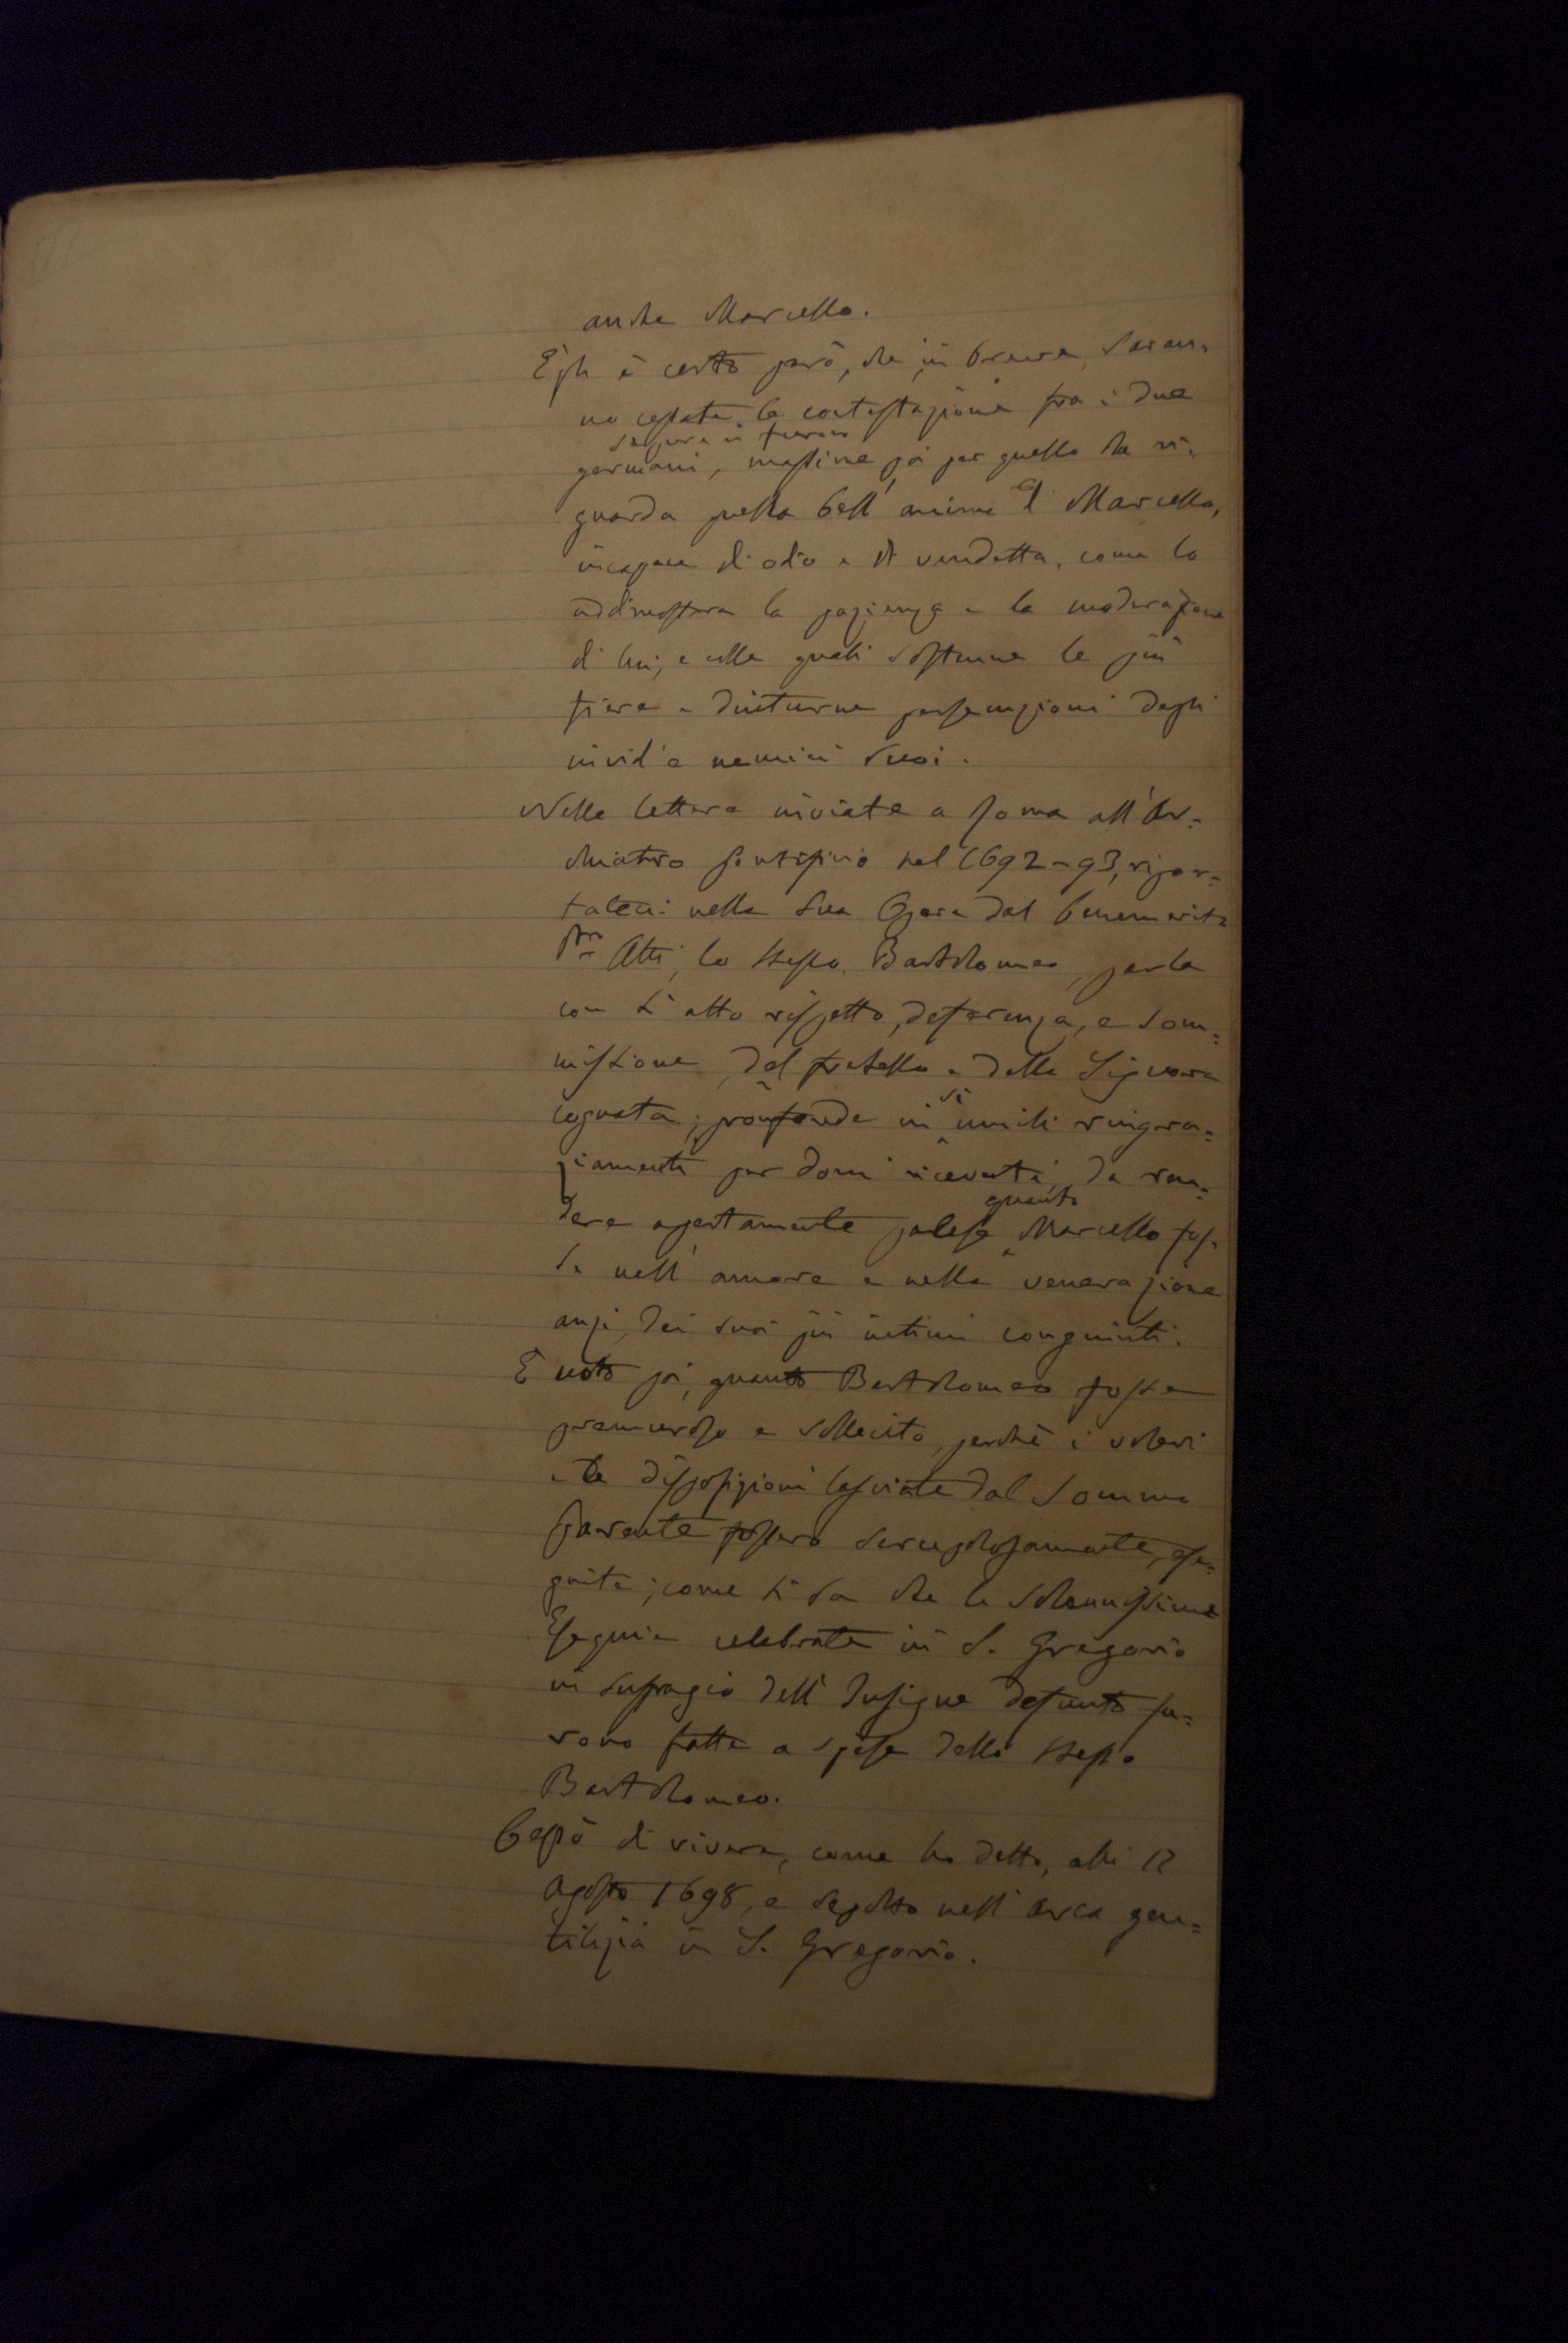 anche Marcello.
Egli è certo però, che, in breve, saran=
no cessate le contestazioni fra i due
se pure vi furono
germani, massime poi per quello che ri=
guarda quella bell'anima di Marcello,
incapace di odio e di vendetta, come lo
addimostra la pazienza e la moderazione
di lui, e colle quali sostenne le più
fiere e diuturne persecuzioni degli
invidi e nemici suoi.
Nelle lettere inviate a Roma all'Ar=
chiatro Pontificio nel 1692-93, ripor=
tateci nella sua Opera dal benemerito
Atti, lo stesso Bartolomeo, parla
con sì alto rispetto, deferenza, e som=
missione, del fratello e della Signora
cognata; profonde in sì umili ringra=
ziamenti per doni ricevuti, da ren=
dere apertamente palese quanto Marcello fos=
se nell'amore e nella venerazione
anzi, dei suoi più intimi congiunti.
È noto poi, quanto Bartolomeo fosse
premuroso e sollecito, perchè i voleri
e le disposizioni lasciate dal Sommo
Parente fossero scrupolosamente, ese=
guite; come si sa che le solennissime
Esequie celebrate in S. Gregorio
in suffragio dell'Insigne defunto fu=
rono fatte a spese dello stesso
Bartolomeo.
Cessò di vivere, come ho detto, alli 12
Agosto 1698, e sepolto nell'arca gen=
tilizia in S. Gregorio.